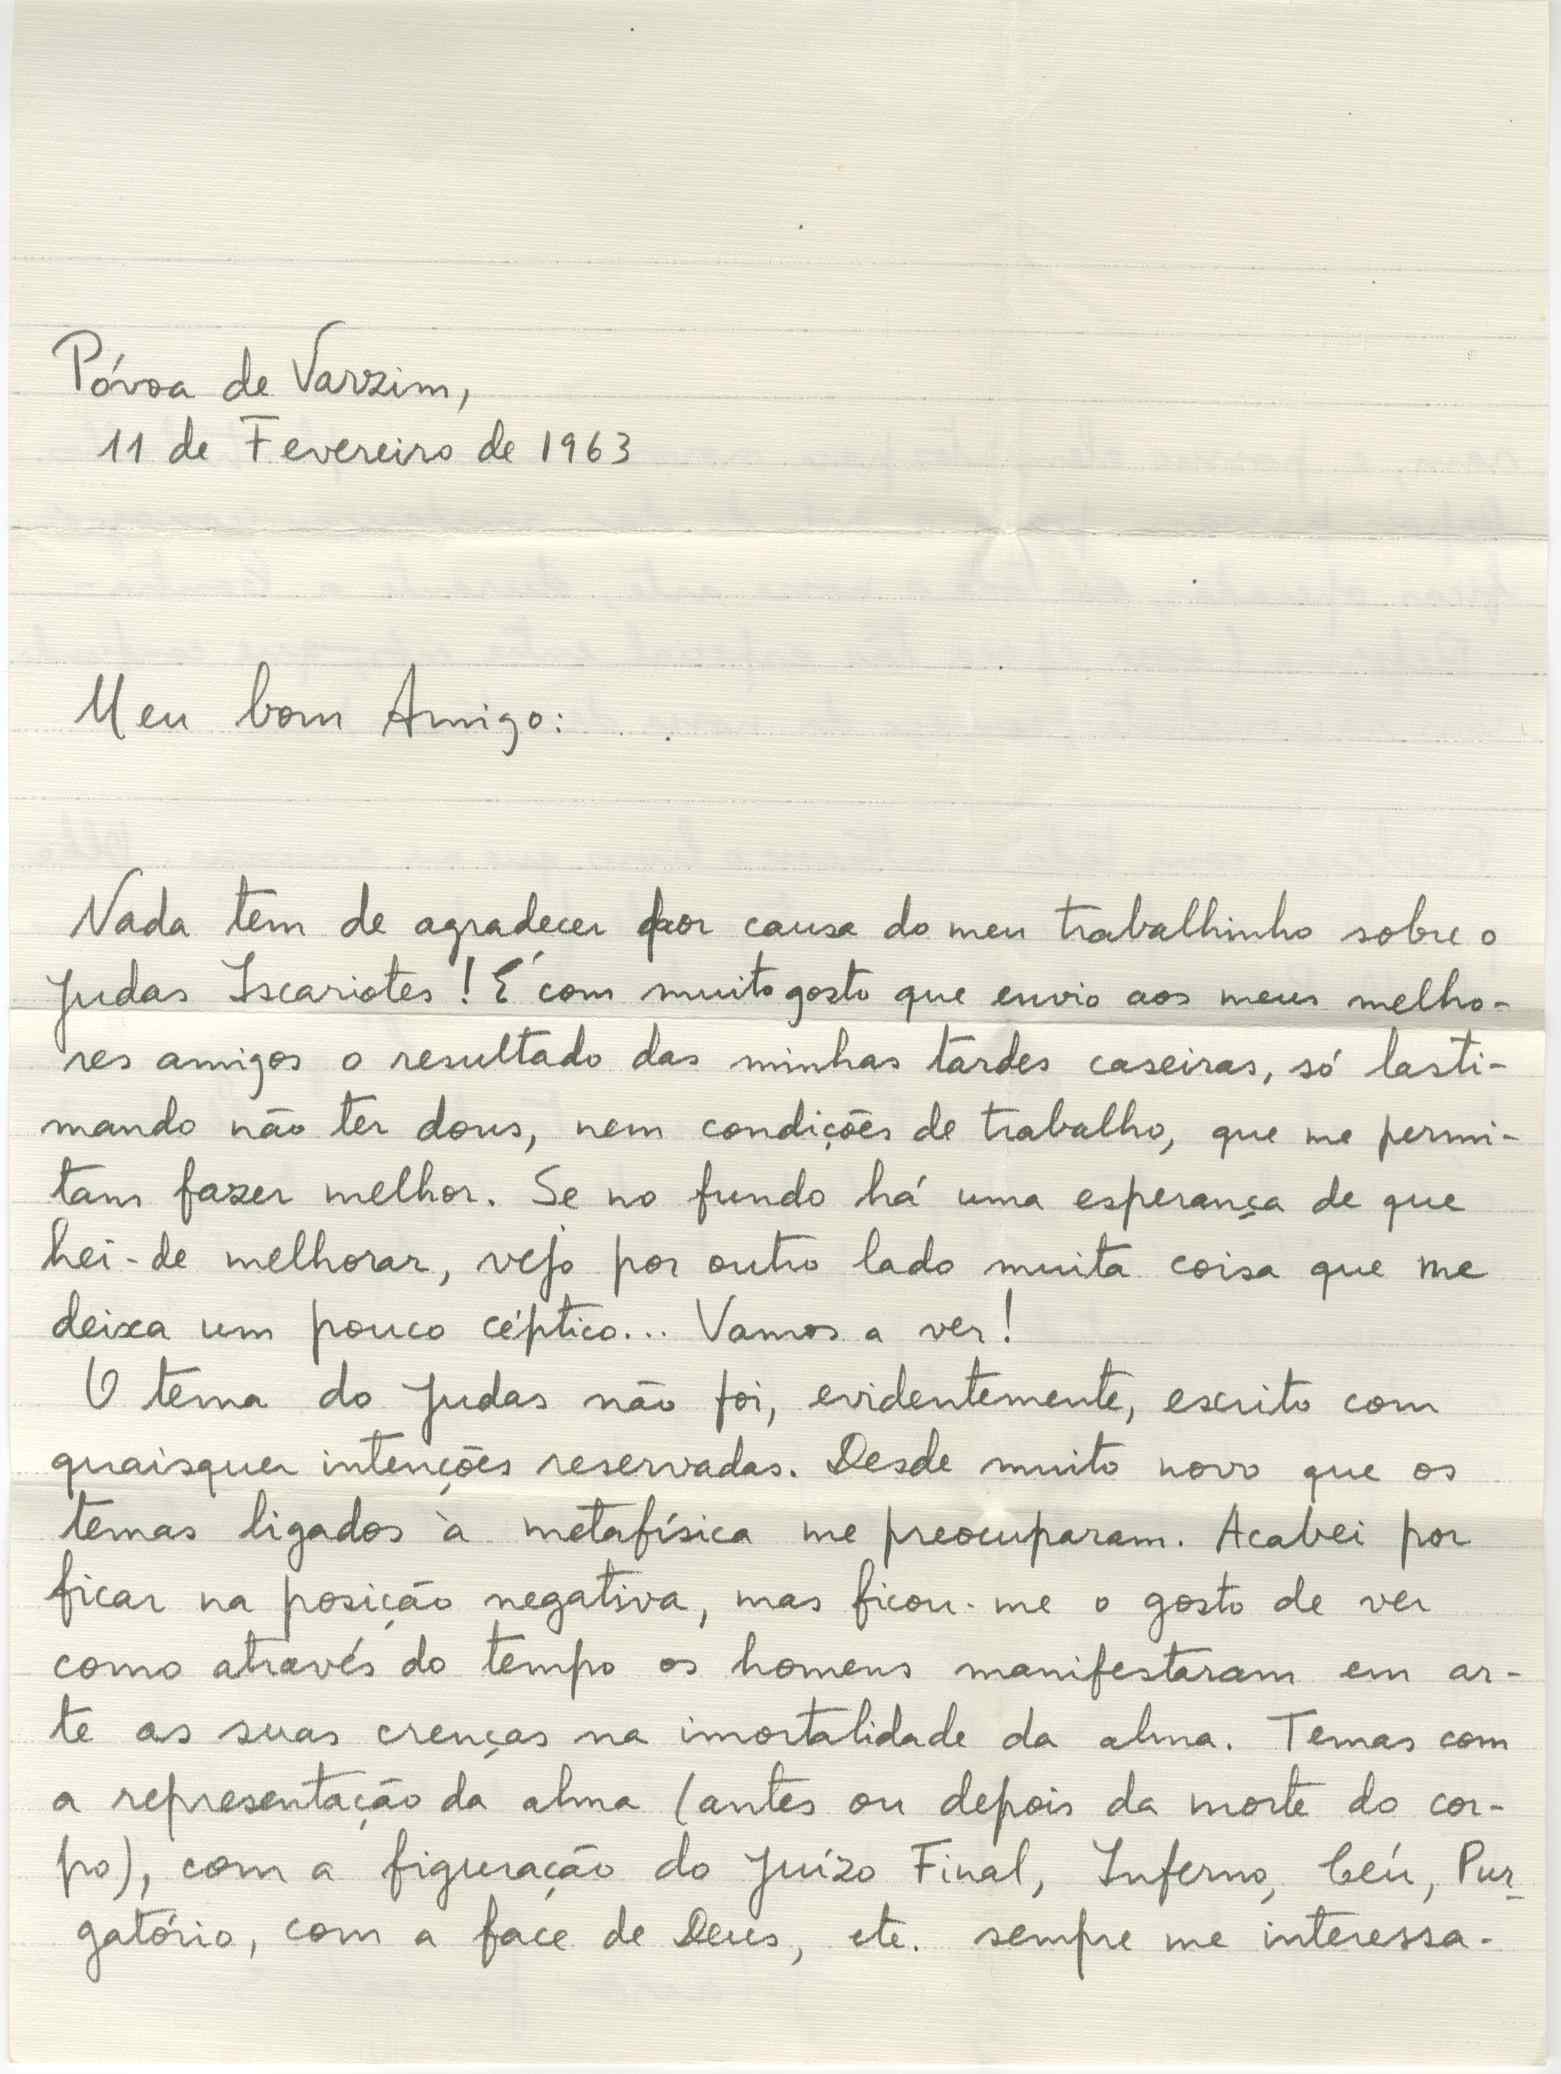 Póvoa de Varzim,
11 de Fevereiro de 1963
Meu bom Amigo:
Nada tem de agradecer por causa do meu trabalhinho sobre o
Judas Iscariotes! É com muito gosto que envio aos meus melho-
res amigos o resultado das minhas tardes caseiras, só lasti-
mando não ter dons, nem condições de trabalho, que me permi-
tam fazer melhor. Se no fundo há uma esperança de que
hei-de melhorar, vejo por outro lado muita coisa que me
deixa um pouco céptico... Vamos a ver!
O tema do Judas não foi, evidentemente, escrito com
quaisquer intenções reservadas. Desde muito novo que os
temas ligados à metafísica me preocuparam. Acabei por
ficar na posição negativa, mas ficou-me o gosto de ver
como através do tempo os homens manifestaram em ar-
te as suas crenças na imortalidade da alma. Temas com
a representação da alma (antes ou depois da morte do cor-
po), com a figuração do Juízo Final, Inferno, Céu, Pur-
gatório, com a face de Deus, etc. sempre me interessa-